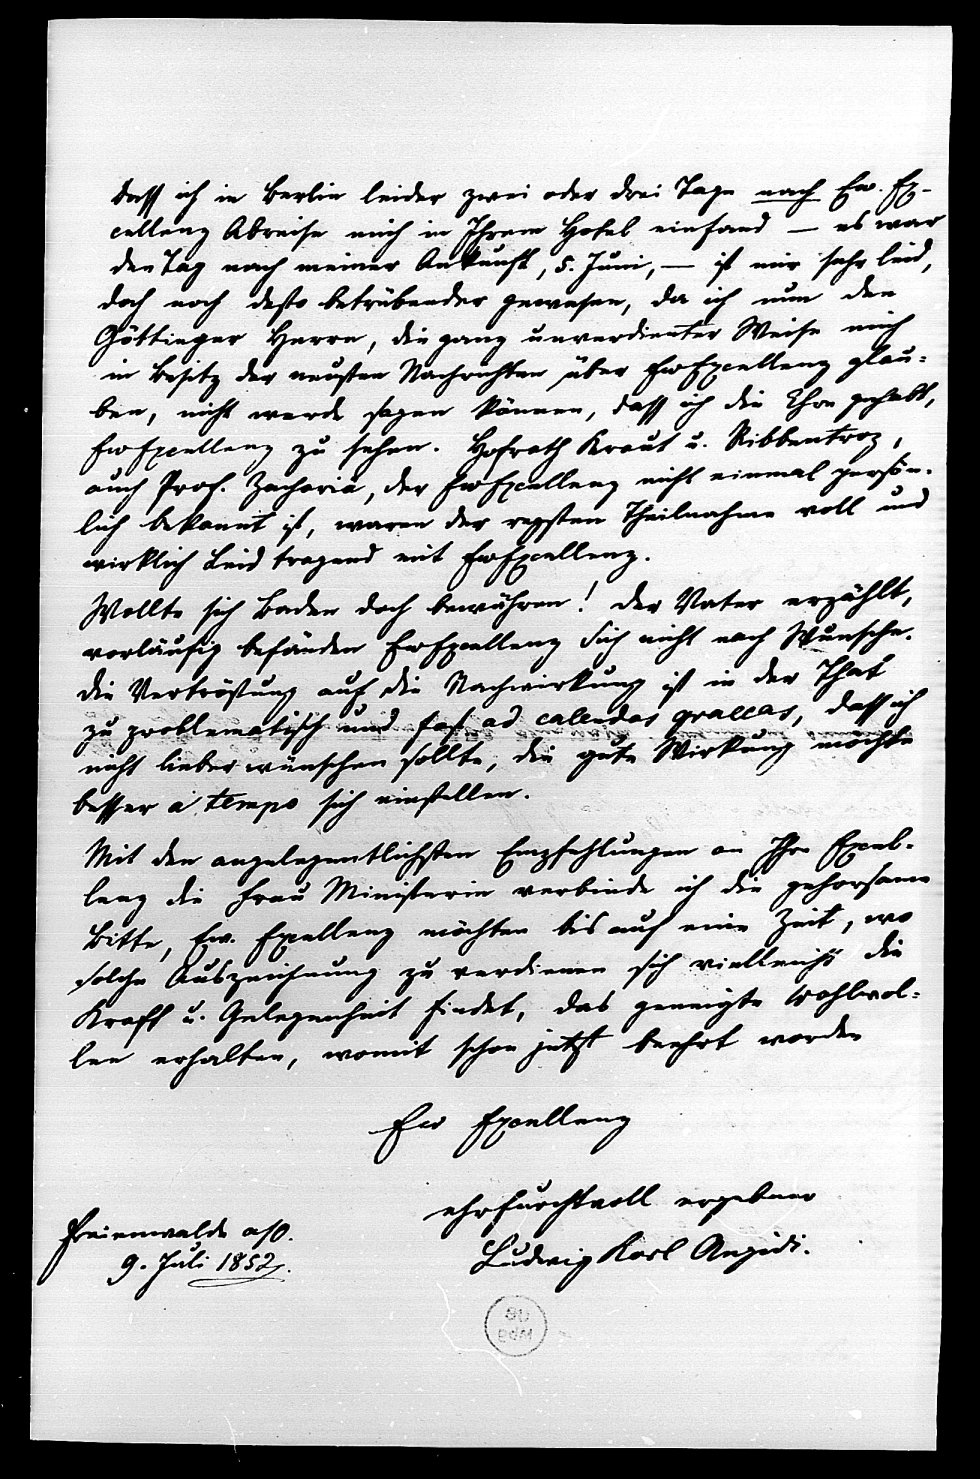 Dass ich in Berlin leider zwei oder drei Tage nach Ew. Ex-
cellenz Abreise mich in Ihrem Hotel einfand — es war
den Tag nach meiner Ankunft, 5. Juni, — ist mir sehr leid,
doch noch desto betrübender gewesen, da ich nun den
Göttinger Herren, die ganz unverdienter Weise mich
in Besitz der neusten Nachrichten über Ew Excellenz glau-
ben, nicht werde sagen können, dass ich die Ehre gehabt,
Ew Excellenz zu sehen. Hofrath Kraut u. Ribbentrop,
auch Prof. Zachariä, der Ew Excellenz nicht einmal persön-
lich bekannt ist, waren der regsten Theilnahme voll und
wirklich Leid tragend mit Ew Excellenz.
Wollte sich Baden doch bewähren! Der Vater erzählt,
vorläufig befänden Ew Excellenz Sich nicht nach Wunsche.
Die Vertröstung auf die Nachwirkung ist in der That
zu problematisch und fast ad calendas graecas, dass ich
nicht lieber wünschen sollte, die gute Wirkung möchte
besser a tempo sich einstellen.
Mit den angelegentlichsten Empfehlungen an Ihre Excel-
lenz die Frau Ministerin verbinde ich die gehorsame
Bitte, Ew. Excellenz möchten bis auf eine Zeit, wo
solche Auszeichnung zu verdienen sich vielleicht die
Kraft u. Gelegenheit findet, das geneigte Wohlwol-
len erhalten, womit schon jetzt beehrt worden
Ew Excellenz
ehrfurchtvoll ergebner
Ludwig Karl Aegidi.
Freienwalde a/O.
9. Juli 1852.